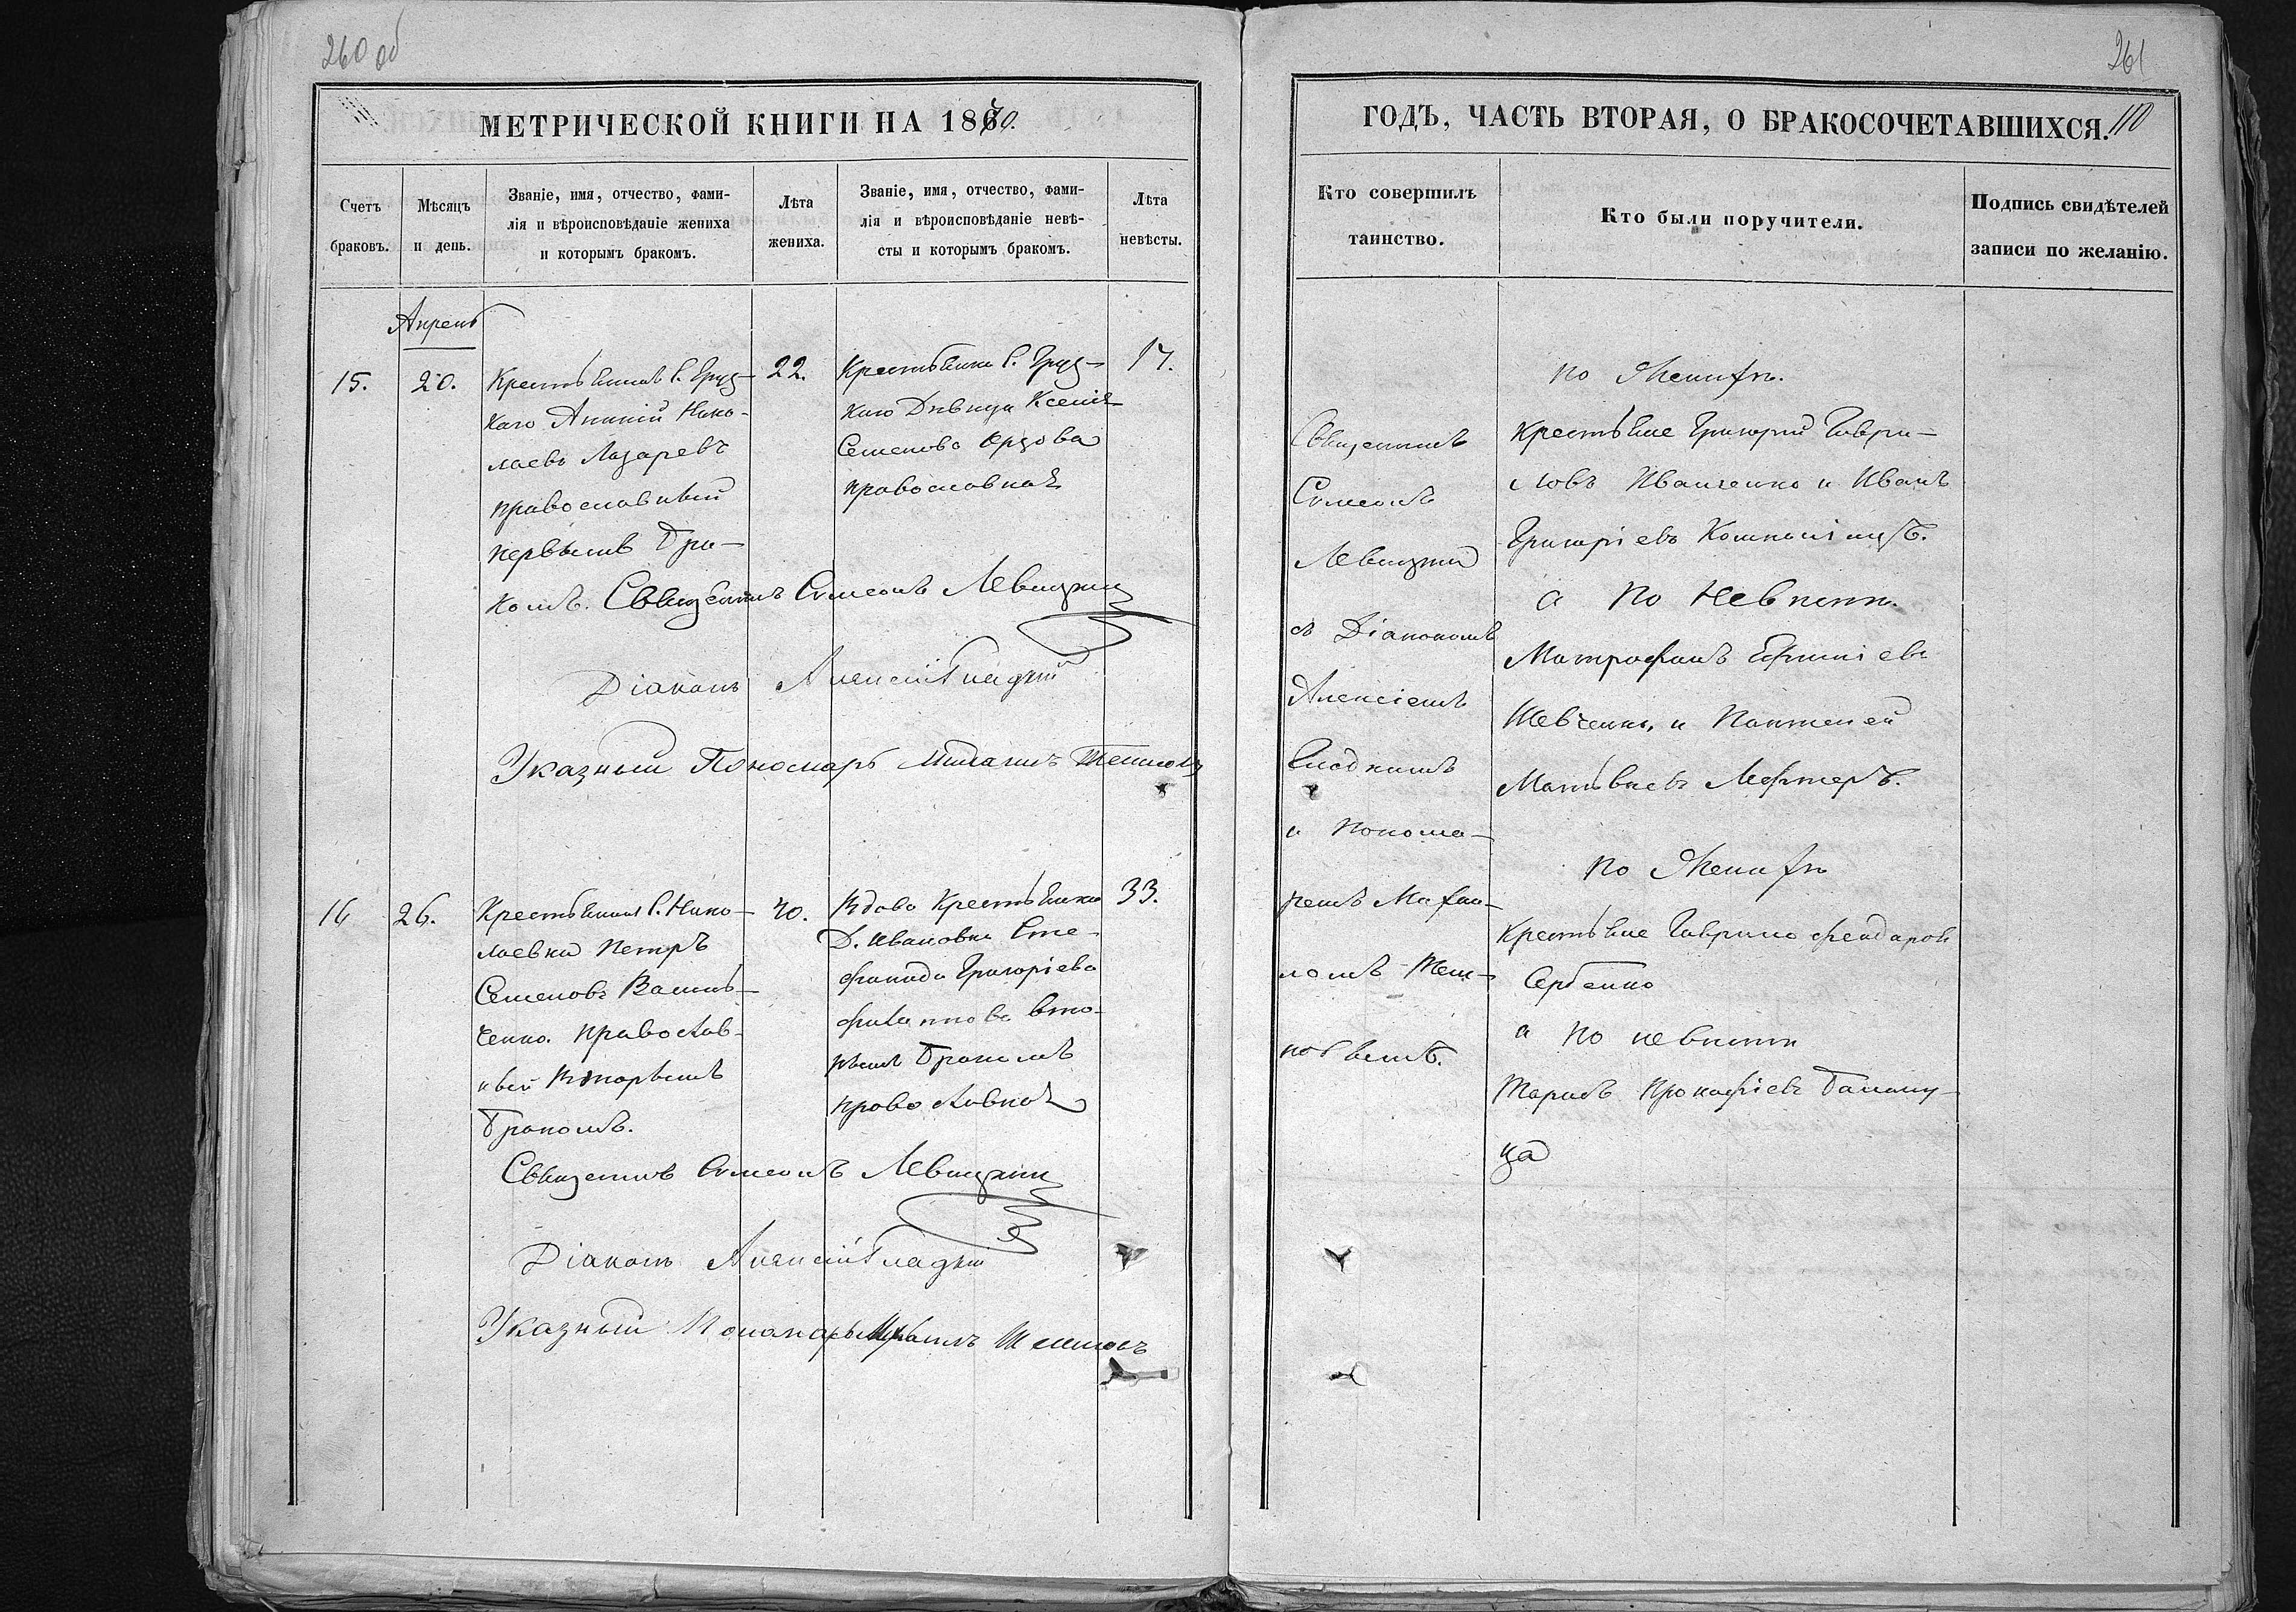 260 об
МЕТРИЧЕСКОЙ КНИГИ НА 1870.
Счетъ браковъ.
Мѣсяцъ и день.
Званіе, имя, отчество, фами-
лія и вѣроисповѣданіе жениха
и которымъ бракомъ.
Лѣта жениха.
Званіе, имя, отчество, фами-
лія и вѣроисповѣданіе невѣ-
сты и которымъ бракомъ.
Лѣта невѣсты.
Апрель
15.
20.
Крестьянинъ с. Груз-
каго Ананій Нико-
лаевъ Лазаревъ
православный
первымъ бра-
комъ.
22.
Крестьянка с. Груз-
каго Дѣвица Ксенія
Семенова
православная
17.
Священникъ Симеонъ Левицкій
Діаконъ Алексій Гладкій
Указный Пономарь Михаилъ
16
26.
Крестьянинъ с. Нико-
лаевки Петръ
Семеновъ
ченко. православ-
ный вторымъ
бракомъ.
40.
Вдова Крестьянка
Д. Ивановки Сте-
фанида Григоріева
Филиппова вто-
рымъ бракомъ
православная
33.
Священникъ Симеонъ Левицкій
Діаконъ Алексій Гладкій
Указный Пономарь Михаилъ
261
ГОДЪ, ЧАСТЬ ВТОРАЯ, О БРАКОСОЧЕТАВШИХСЯ.
110
Кто совершилъ
таинство.
Кто были поручители.
Подпись свидѣтелей
записи по желанію.
Священникъ
Симеонъ
Левицкій
съ Діакономъ
Алексіемъ
Гладкимъ
и Понома-
ремъ Михаи-
ломъ
по Женихѣ.
Крестьяне Григорій Гаври-
ловъ Иванченко и Иванъ
Григоріевъ
а по Невѣстѣ.
Митрофанъ
Шевченко, и Пантелей
Матвѣевъ
по Женихѣ
Крестьяне Гаврило
Сербенко
а по невѣстѣ
Тарасъ Прокофіевъ